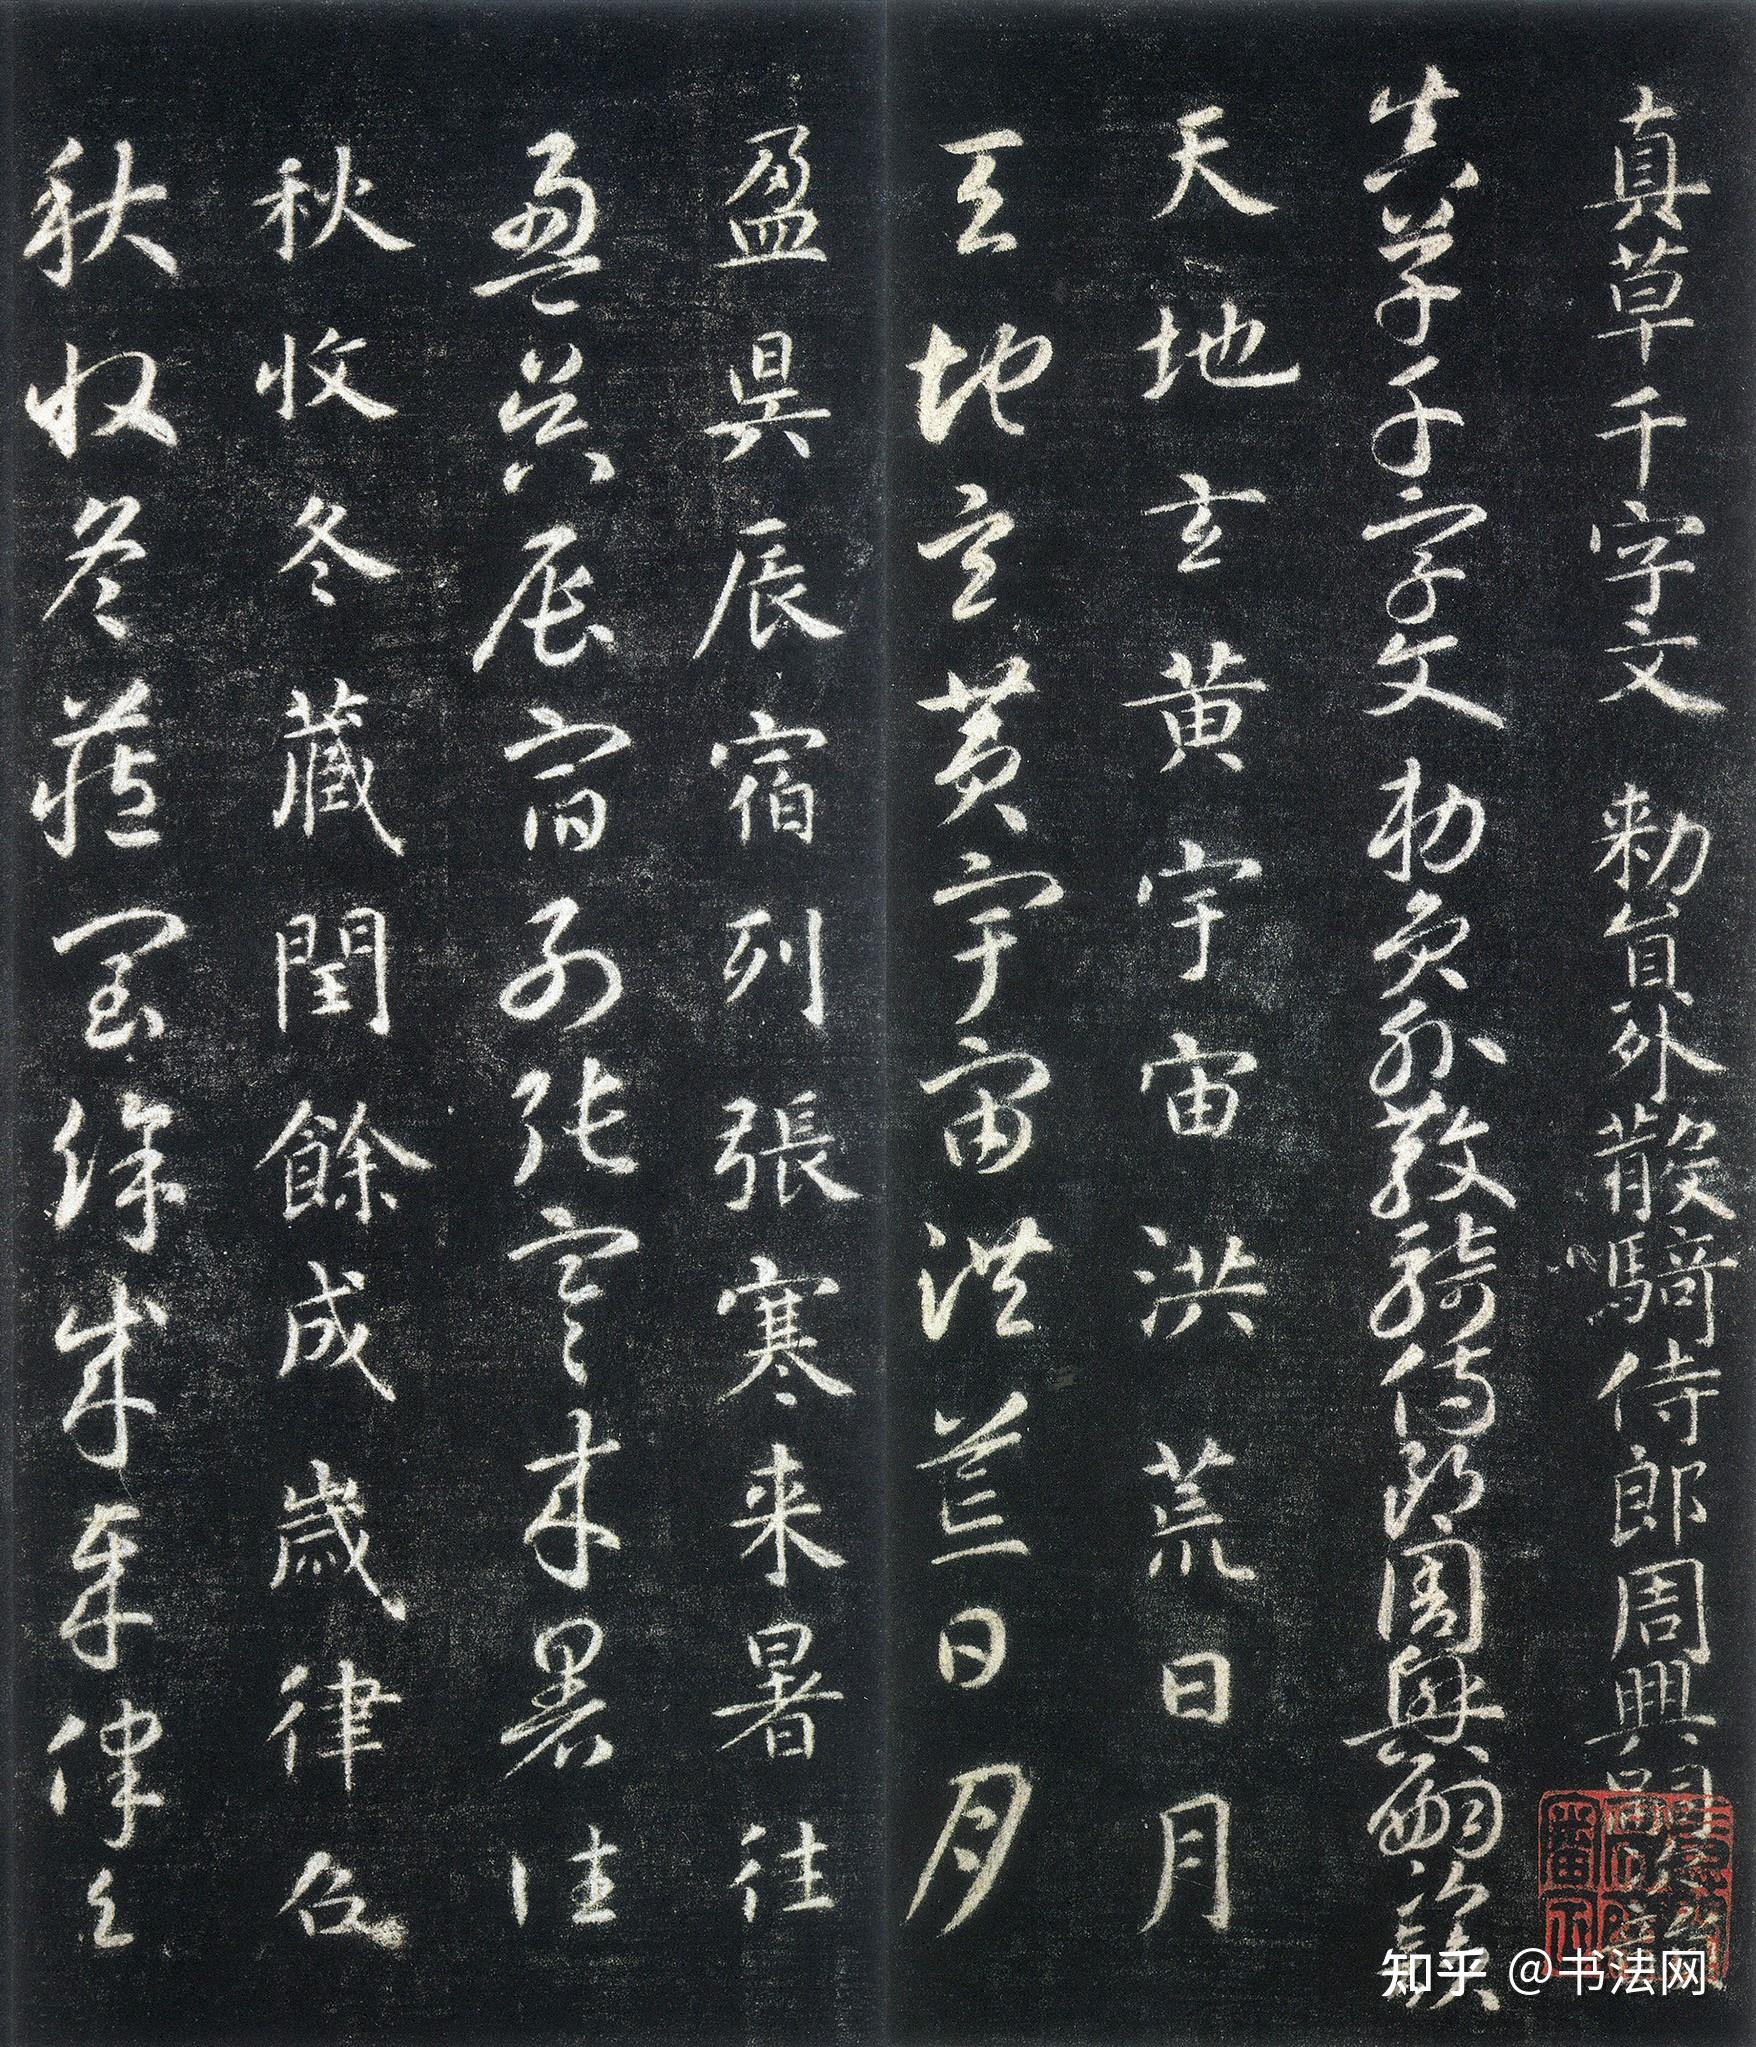 真草千字文 勅員外散騎侍郎周興嗣次韻
真草千字文 勅員外散騎侍郎周興嗣次韻
天地玄黄宇宙洪荒日月
天地玄黄宇宙洪荒日月
盈昃辰宿列張寒来暑往
盈昃辰宿列張寒来暑往
秋收冬藏閏餘成歲律召
秋收冬藏閏餘成歲律召
知乎 @书法网